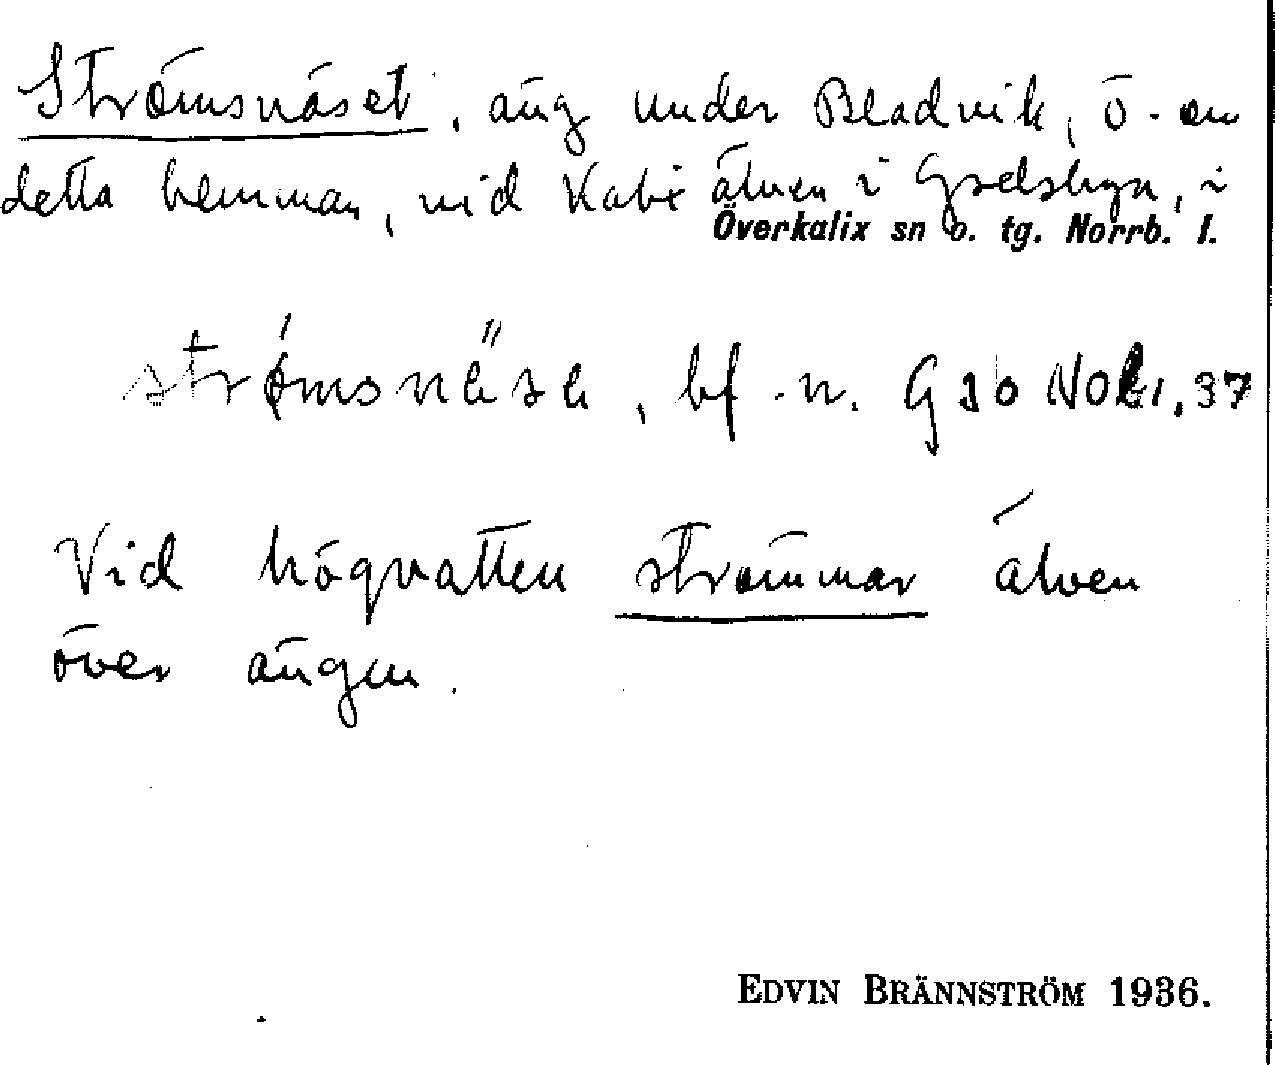 Strömsnäset, äng under Bladvik, ö. om
detta hemman, vid Kalix älven i Grelsbyn, i
Överkalix sn o. tg. Norrb. l.
bf. n.
Vid högvatten strömmar älven
över ängen.
EDVIN BRÄNNSTRÖM 1936.